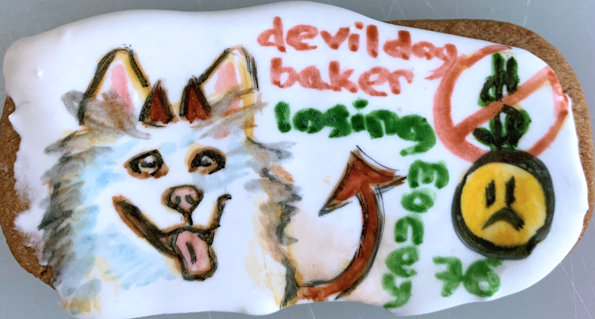 devildog
baker
losing
money
$
76